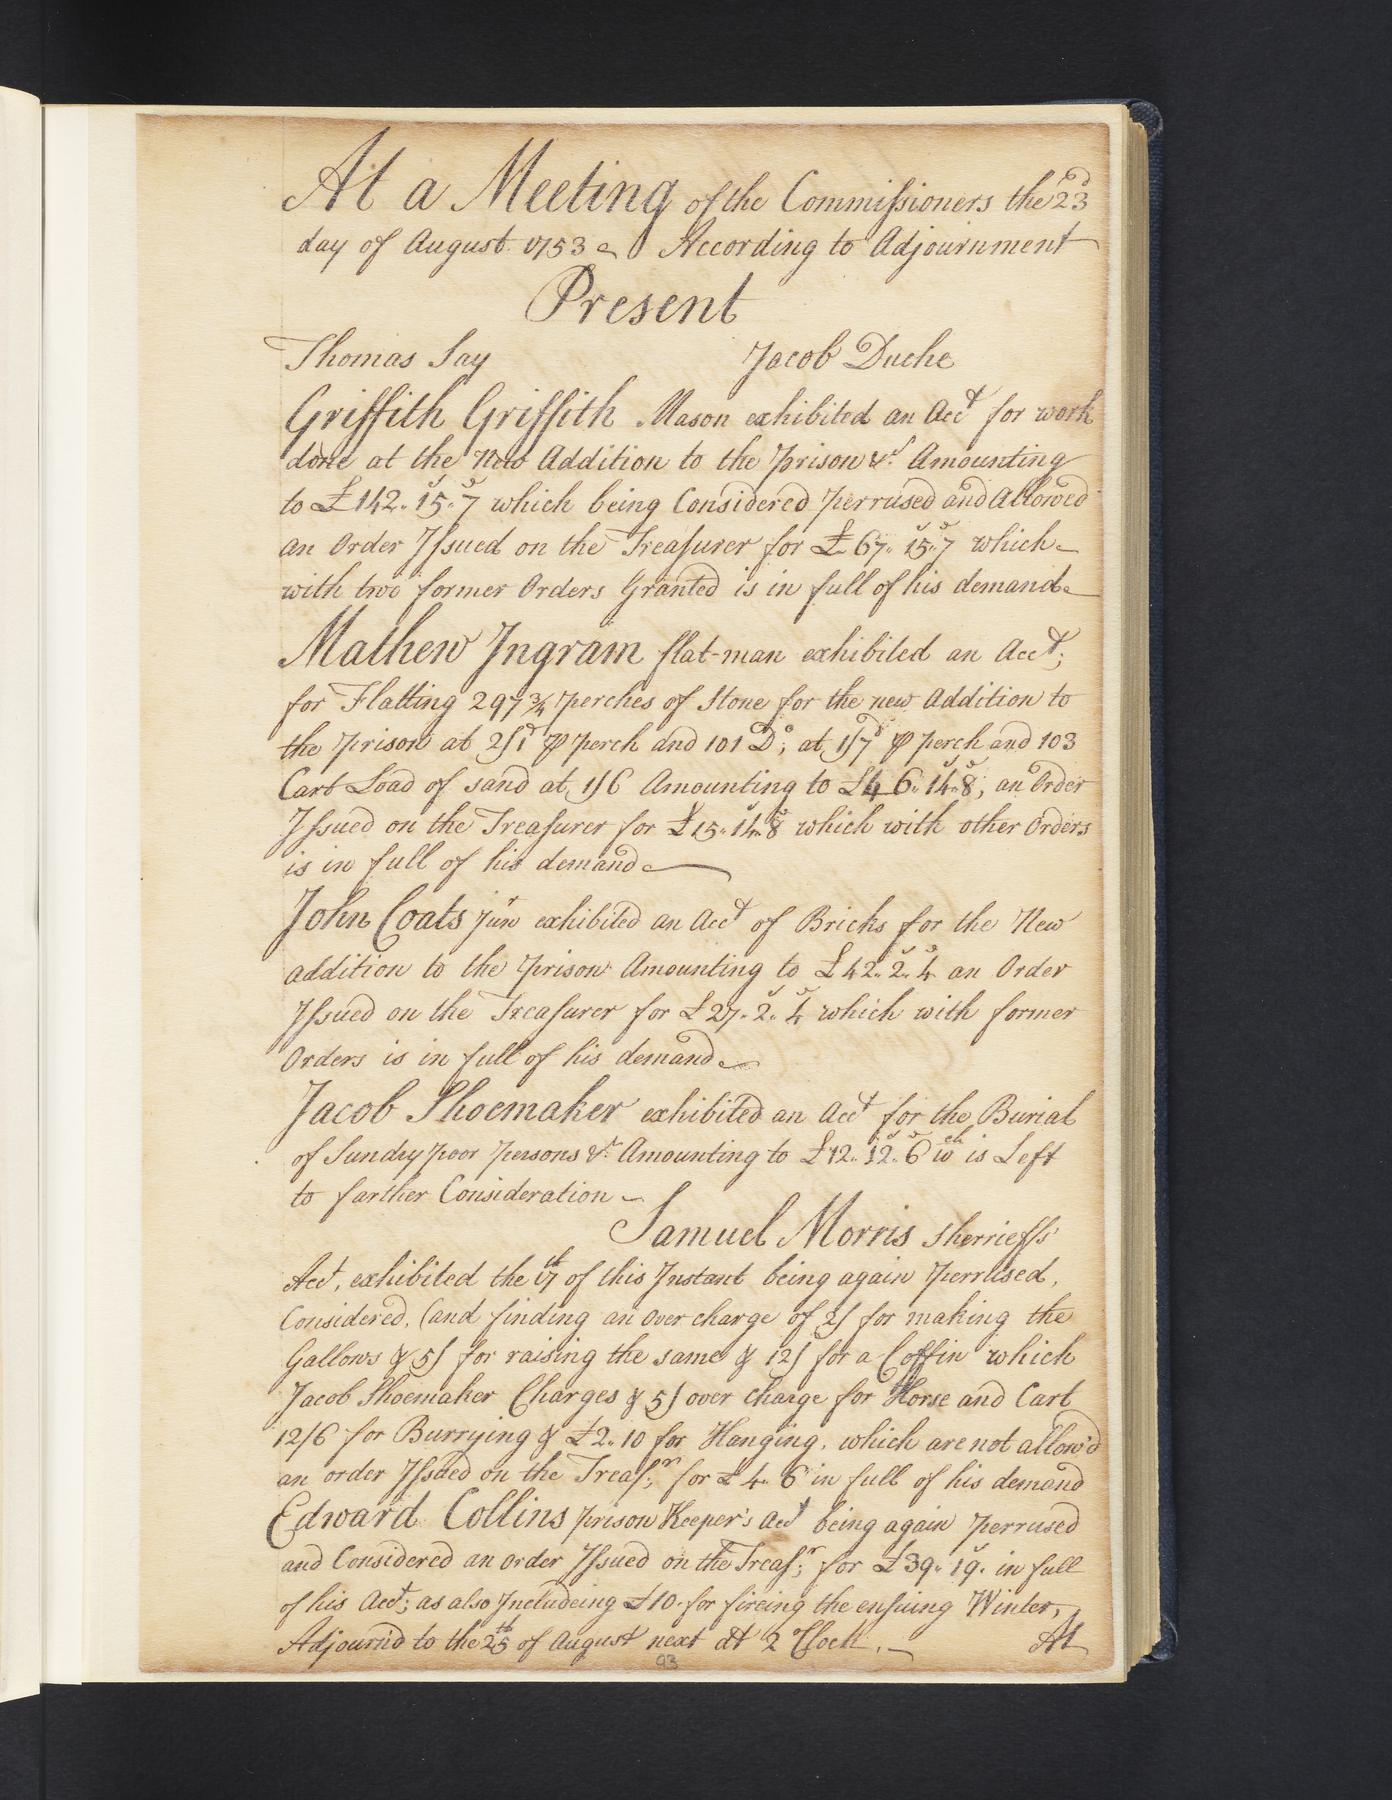 At a Meeting of the Commissioners the 23d
day of August 1753 According to Adjournment
Present
Thomas Say Jacob Duche
Griffith Griffith Mason exhibited an Acct for work
done at the New Addition to the Prison &c Amounting
to £142.. 15.. 7 which being Considered Perrused and Allowed
an Order Issued on the Treasurer for £67.. 15.. 7 which
with two former Orders Granted is in full of his demand
Mathew Ingram flat-man exhibited an Acct;
for Flatting 297 3/4 Perches of Stone for the new Addition to
the Prison at 2/1d ⅌ Perch and 101 Do; at 1/7d ⅌ Perch and 103
Cart Load of sand at 1/6 Amounting to £46.. 14.. 8; an Order
Issued on the Treasurer for £15.. 14.. 8 which with other Orders
is in full of his demand
John Coats Junr exhibited an Acct of Bricks for the New
addition to the Prison Amounting to £42.. 2.. 4 an Order
Issued on the Treasurer for £27.. 2.. 4 which with former
Orders is in full of his demand
Jacob Shoemaker exhibited an Acct for the Burial
of Sundry Poor Persons &c Amounting to £12.. 12.. 6 wch is Left
to farther Consideration
Samuel Morris Sherrieffs
Acct, exhibited the 17th of this Instant being again Perrused,
Considered, (and finding an Over charge of 2/ for making the
Gallows & 5/ for raising the same & 12/ for a Coffin which
Jacob Shoemaker Charges & 5/ over charge for Horse and Cart
12/6 for Burrying & £2.. 10 for Hanging, which are not allow'd
an order Issued on the Treasr; for £4.. 6 in full of his demand
Edward Collins Prison Keeper's Acct being again Perrused
and Considered an order Issued on the Treasr; for £39.. 19. in full
of his Acct; as also Includeing £10. for fireing the ensuing Winter,
Adjourn'd to the 25th of August next at 2 Clock. At
93